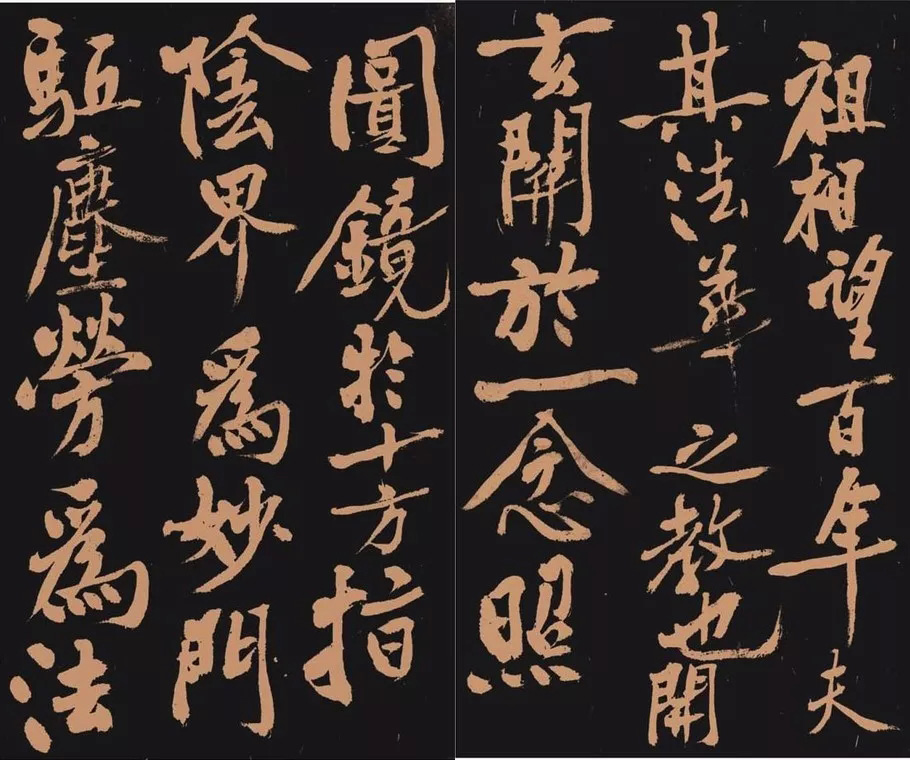 祖相望百年夫
其法華之教也開
玄關於一念照
圓鏡於十方指
陰界為妙門
駈塵勞為法